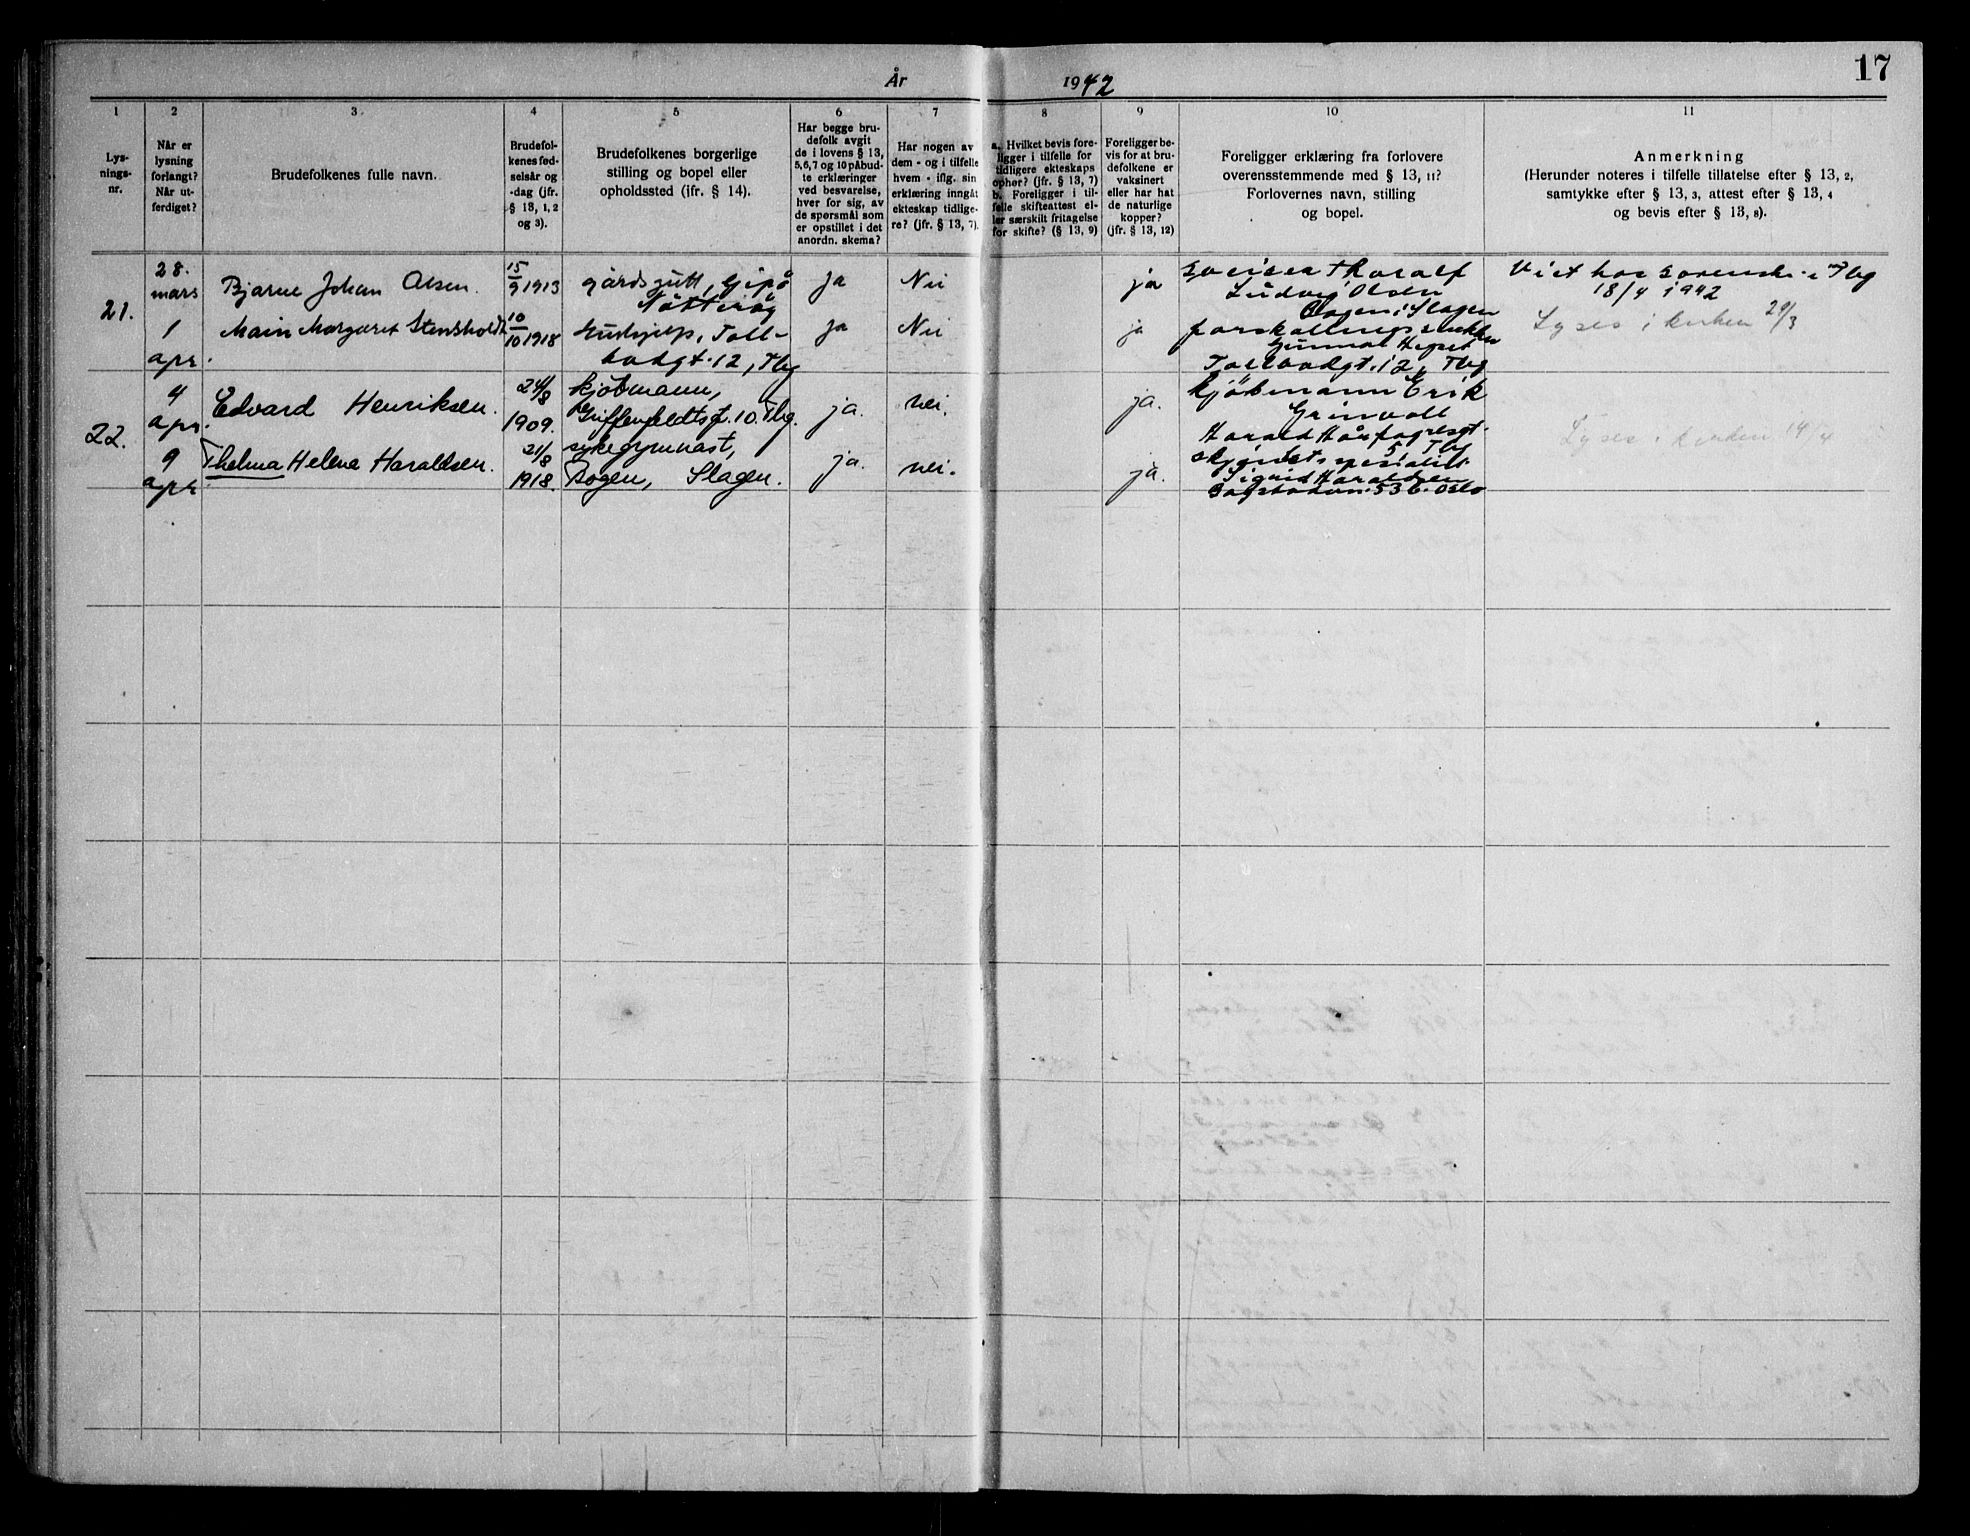 17
År 1942
1
2
3
4
5
6
7
8
9
10
11
Lys-
nings-
nr.
Når er
lysning
forlangt?
Når ut-
ferdiget?
Brudefolkenes fulle navn.
Brudefol-
kenes fød-
selsår og
-dag (jfr.
§ 13, 1, 2
og 3).
Brudefolkenes borgerlige
stilling og bopel eller
opholdssted (jfr. § 14).
Har begge bru-
defolk avgit
de i lovens § 13,
5,6,7 og 10 påbud-
te erklæringer
ved besvarelse,
hver for sig, av
de spørsmål som
er opstillet i det
anordn. skema?
Har nogen av
dem - og i tilfelle
hvem - iflg. sin
erklæring inngått
ekteskap tidlige-
re? (jfr. § 13, 7).
a. Hvilket bevis fore-
ligger i tilfelle for
tidligere ekteskaps
ophør? (jfr. § 13, 7)
b. Foreligger i til-
felle skifteattest el-
ler særskilt fritagelse
for skifte? (§ 13, 9)
Foreligger be-
vis for at bru-
defolkene er
vaksinert
eller har hat
de naturlige
kopper?
(jfr. § 13, 12)
Foreligger erklæring fra forlovere
overensstemmende med § 13, 11?
Forlovernes navn, stilling
og bopel.
Anmerkning
(Herunder noteres i tilfelle tillatelse efter § 13, 2,
samtykke efter § 13, 3, attest efter § 13, 4
og bevis efter § 13, 8).
21.
28.
mars
1
apr.
Bjarne Johan Olsen.
15/9 1913
gårdsgutt, Gipø
Nøtterøy
ja
Nei
ja
Thoralf
Ludvig Olsen
Bogen i Slagen
Viet hos sorenskr. i Tbg
18/4 1942
Main Margaret Stensholdt
10/10 1918
Hushjelp, Toll-
bodgt. 12, Tbg
ja
Nei
ja
Gunnar
Tollbodgt. 12, Tbg
Lyses i kirken 29/3
22.
4
apr.
9
apr.
Edvard Henriksen.
24/8
1909.
kjøbmann,
Griffenfeldtsgt. 10. Tbg.
ja.
nei.
ja.
kjøbmann Erik
Grinvoll
Harald Hårfagresgt.
5 Tbg
Lyses i kirken 14/4
Thelma Helena Haraldsen.
21/8
1918.
sykegymnast,
Bogen, Slagen.
ja.
nei.
ja.
Sigrid Haraldsen
53 b. Oslo